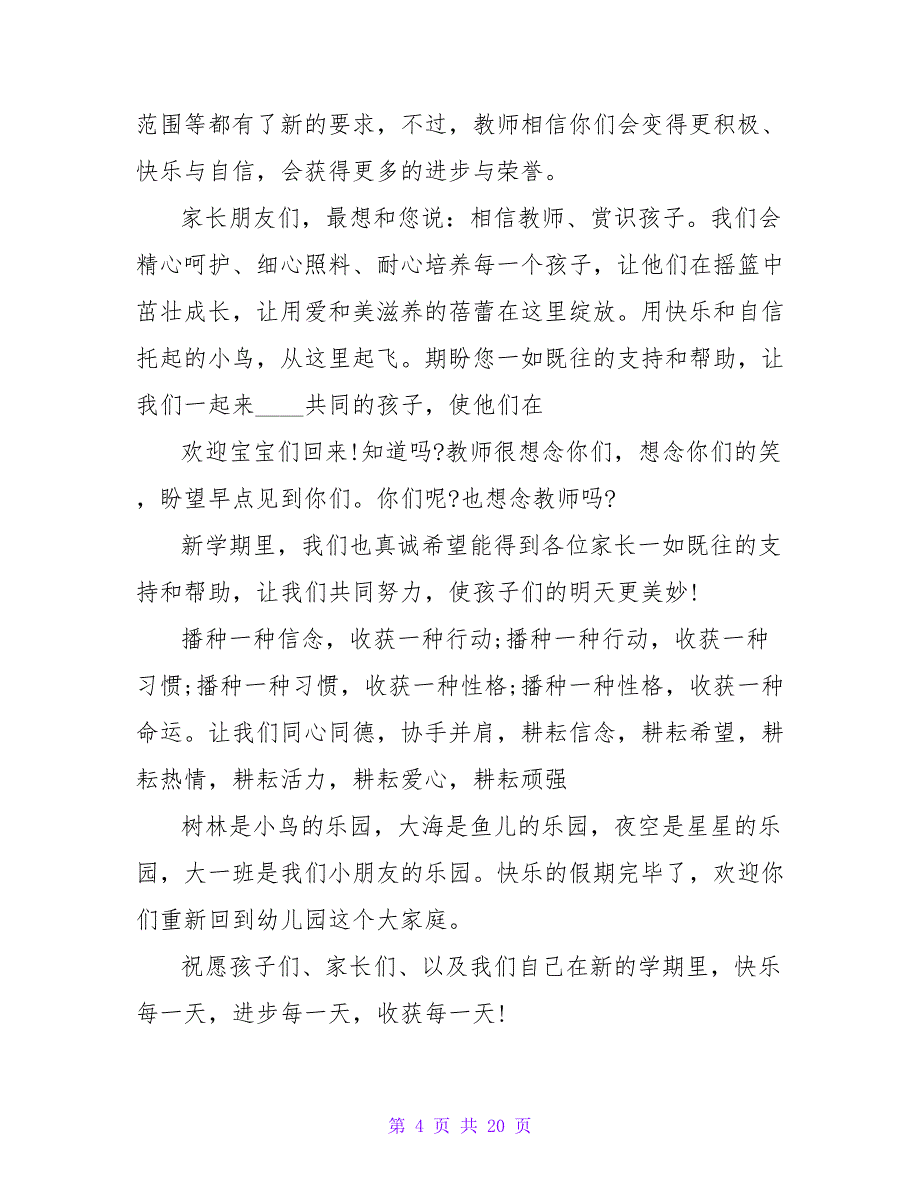 范围等都有了新的要求，不过，教师相信你们会变得更积极、
快乐与自信，会获得更多的进步与荣誉。
家长朋友们，最想和您说：相信教师、赏识孩子。我们会
精心呵护、细心照料、耐心培养每一个孩子，让他们在摇篮中
茁壮成长，让用爱和美滋养的蓓蕾在这里绽放。用快乐和自信
托起的小鸟，从这里起飞。期盼您一如既往的支持和帮助，让
我们一起来____共同的孩子，使他们在
欢迎宝宝们回来!知道吗?教师很想念你们，想念你们的笑
，盼望早点见到你们。你们呢?也想念教师吗?
新学期里，我们也真诚希望能得到各位家长一如既往的支
持和帮助，让我们共同努力，使孩子们的明天更美妙!
播种一种信念，收获一种行动;播种一种行动，收获一种
习惯;播种一种习惯，收获一种性格;播种一种性格，收获一种
命运。让我们同心同德，协手并肩，耕耘信念，耕耘希望，耕
耘热情，耕耘活力，耕耘爱心，耕耘顽强
树林是小鸟的乐园，大海是鱼儿的乐园，夜空是星星的乐
园，大一班是我们小朋友的乐园。快乐的假期完毕了，欢迎你
们重新回到幼儿园这个大家庭。
祝愿孩子们、家长们、以及我们自己在新的学期里，快乐
每一天，进步每一天，收获每一天!
第 4 页 共 20 页